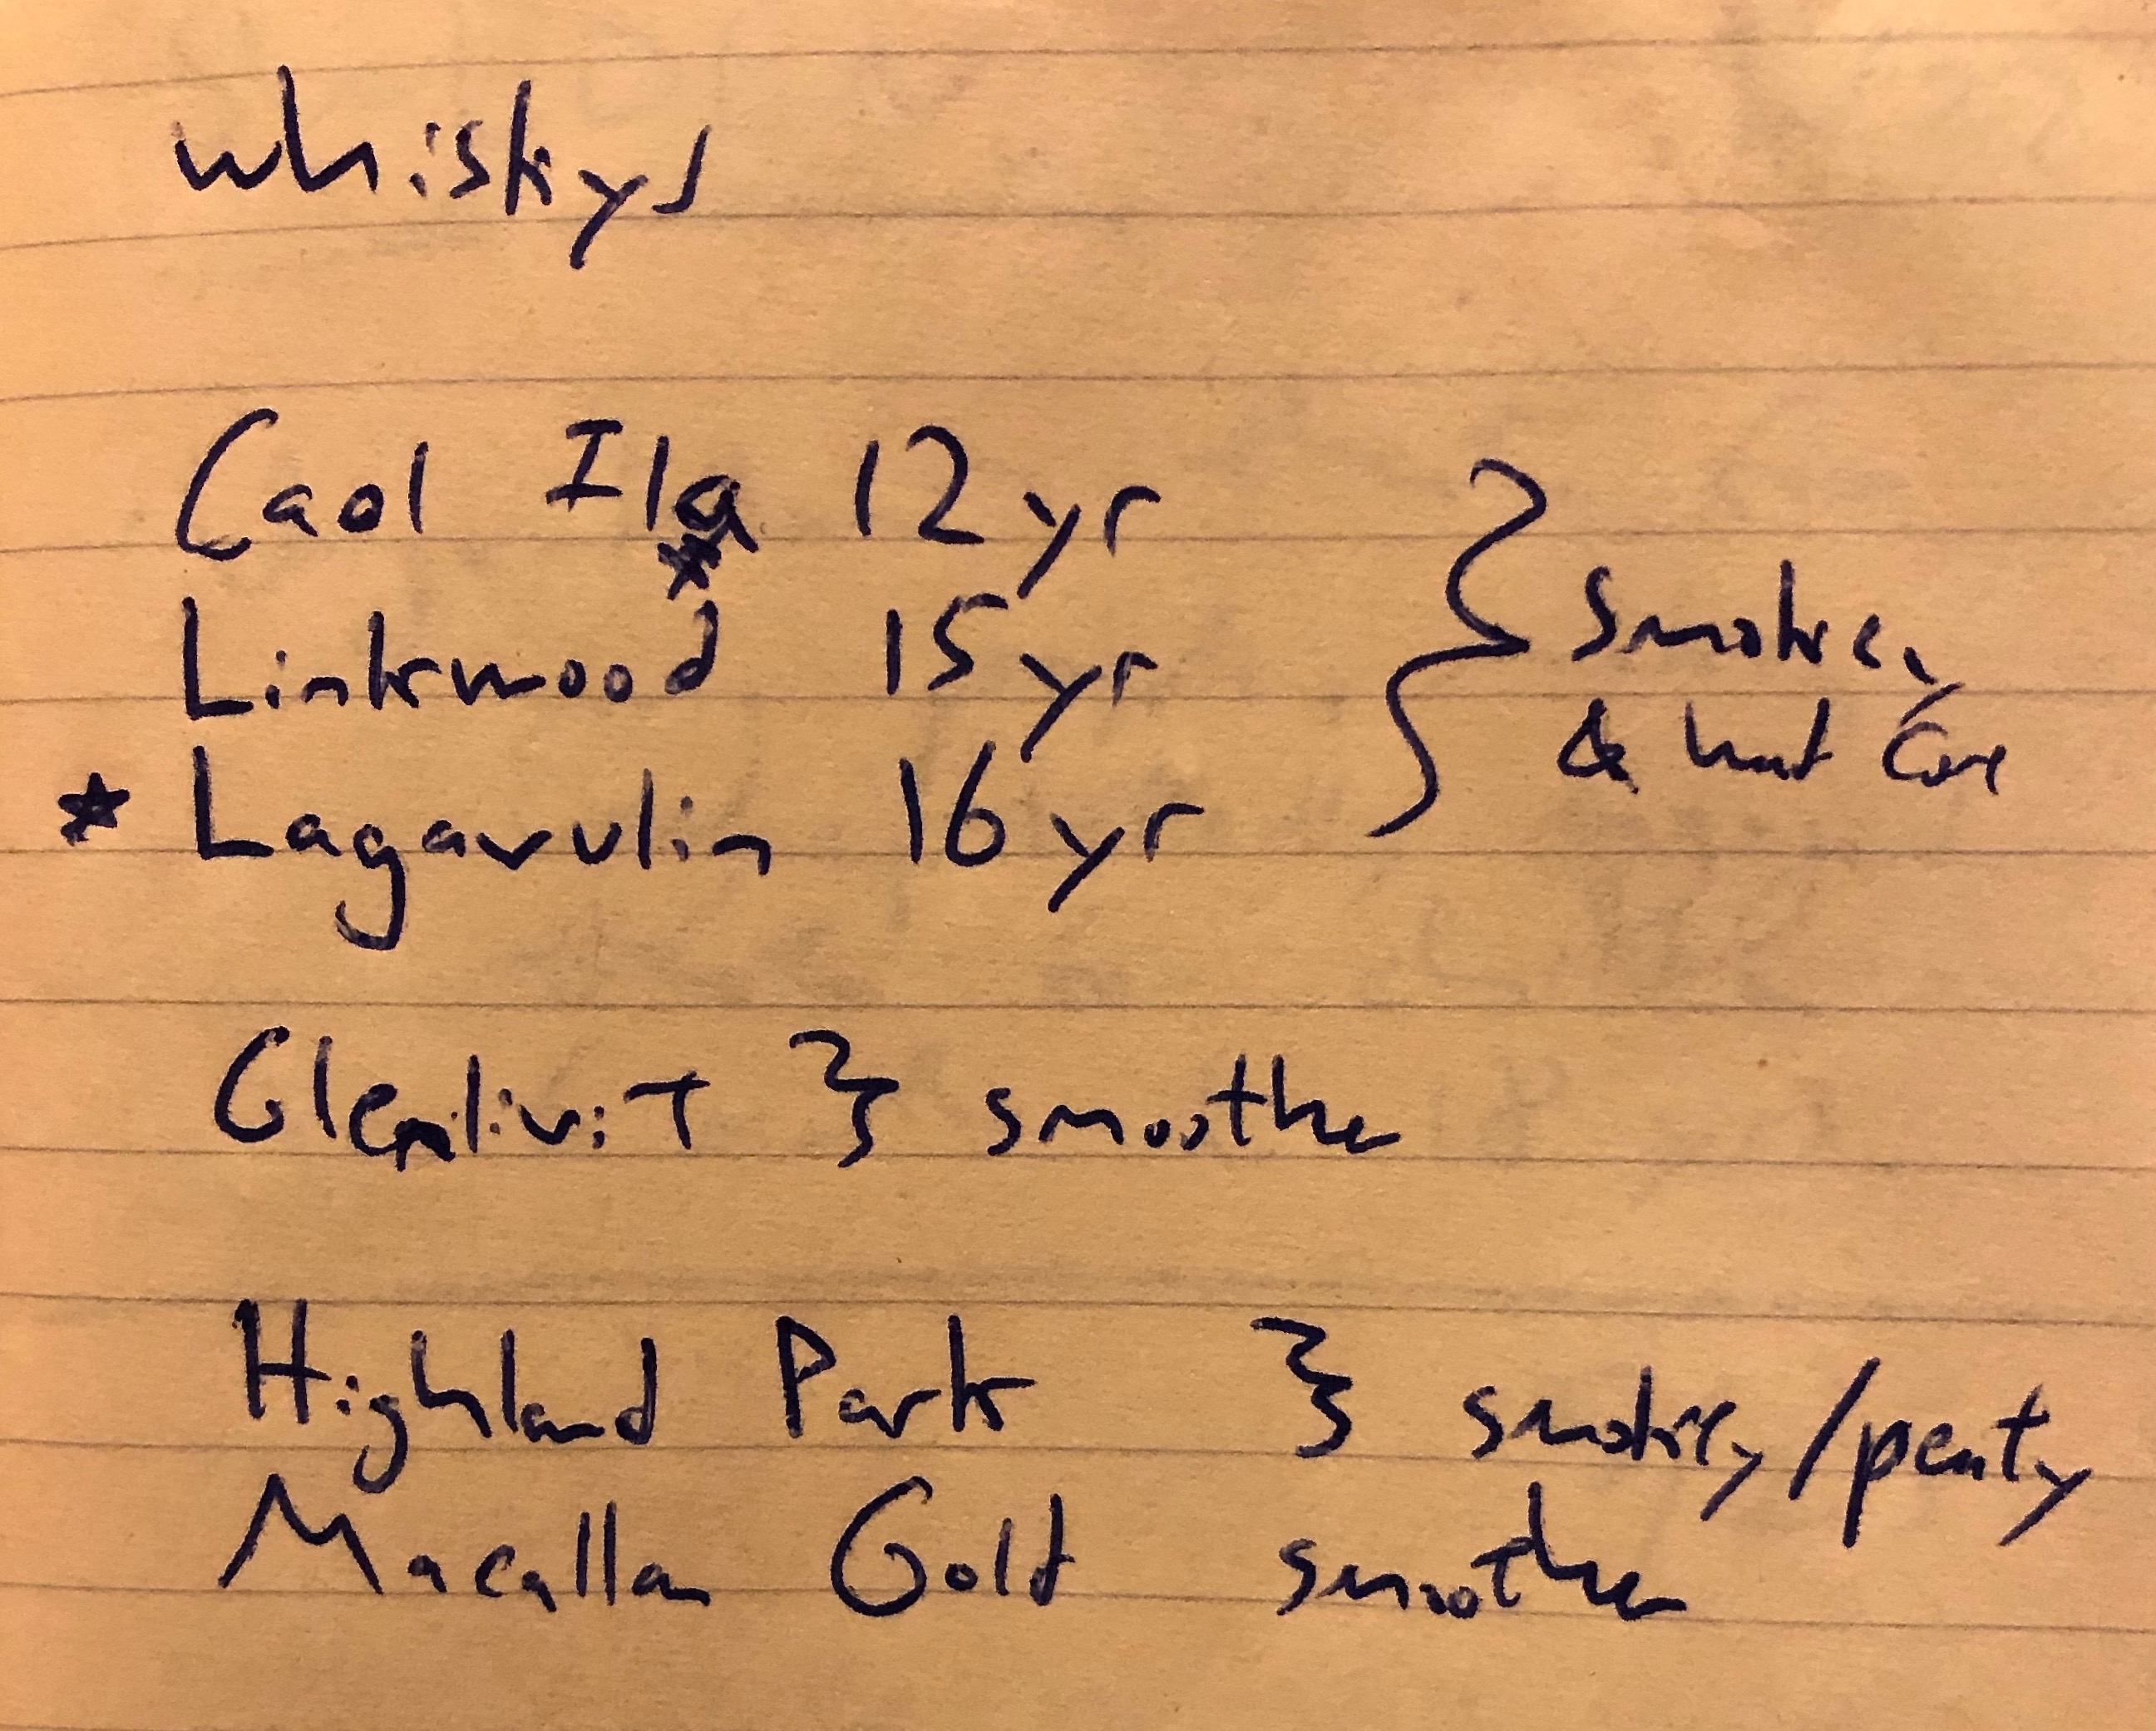 whiskys
Caol Ila 12 yr
Linkwood 15 yr
Lagavulin 16 yr
} smokey
&
Glenlivit } smoother
Highland Park } smokey/peaty
Macallan Gold smoother